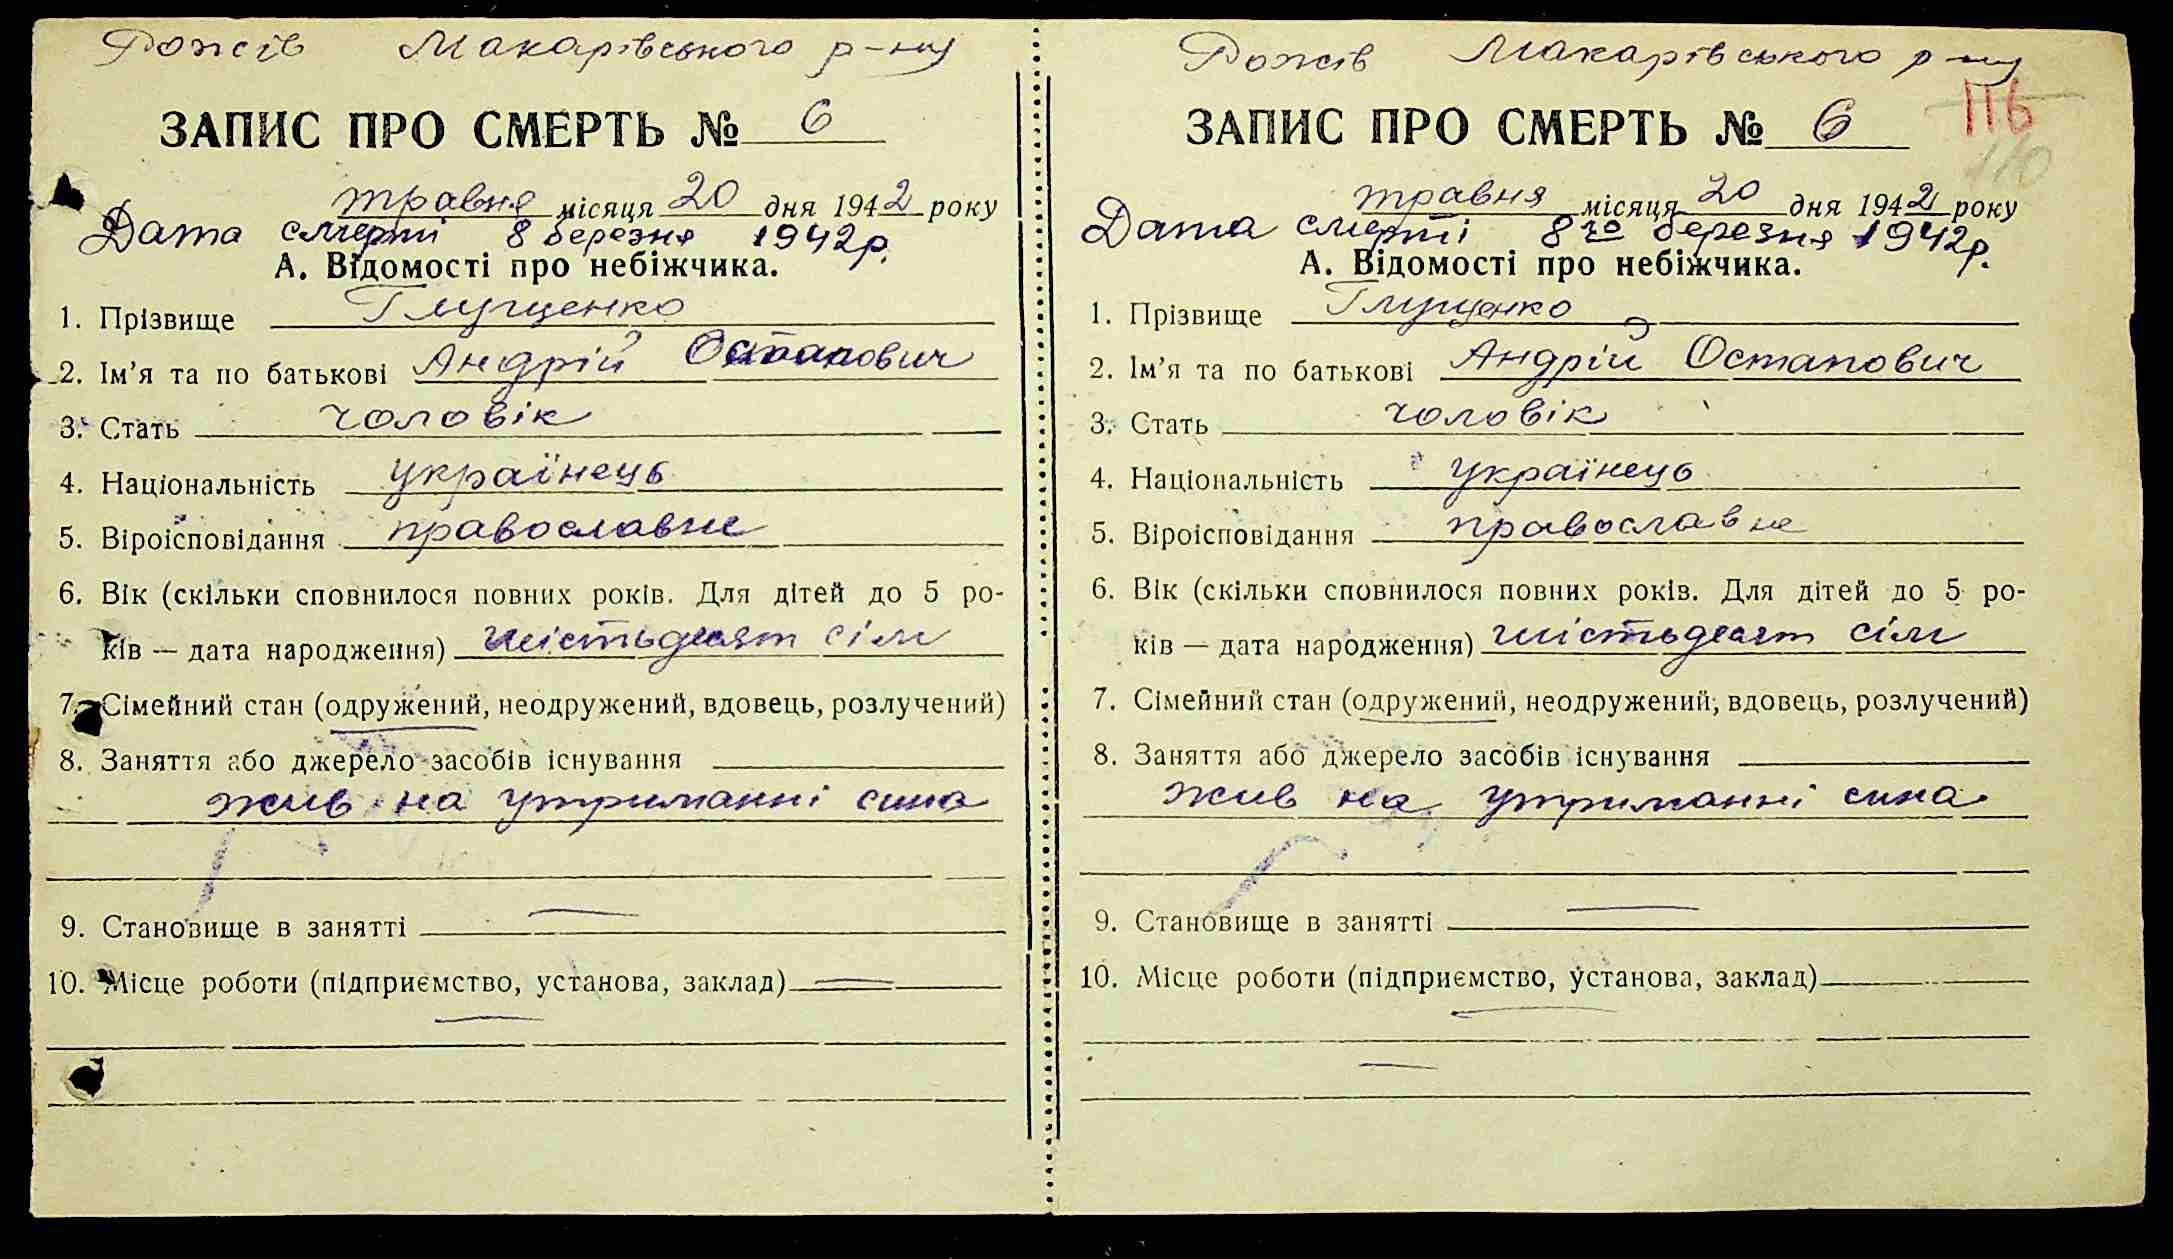 Рожів Макарівського р-ну
ЗАПИС ПРО СМЕРТЬ № 6
травня місяця 20 дня 1942 року
Дата смерті 8 березня 1942 р.
А. Відомості про небіжчика.
1. Прізвище Глущенко
2. Ім'я та по батькові Андрій Остапович
3. Стать чоловік
4. Національність українець
5. Віроісповідання православне
6. Вік (скільки сповнилося повних років. Для дітей до 5 ро-
ків — дата народження) шістьдесят сім
7. Сімейний стан (одружений, неодружений, вдовець, розлучений)
8. Заняття або джерело засобів існування
жив на утриманні сина
9. Становище в занятті —
10. Місце роботи (підприємство, установа, заклад) —
—
Рожів Макарівського р-ну
116
ЗАПИС ПРО СМЕРТЬ № 6
110
травня місяця 20 дня 1942 року
Дата смерті 8го березня 1942 р.
А. Відомості про небіжчика.
1. Прізвище Глущенко
2. Ім'я та по батькові Андрій Остапович
3. Стать чоловік
4. Національність українець
5. Віроісповідання православне
6. Вік (скільки сповнилося повних років. Для дітей до 5 ро-
ків — дата народження) шістьдесят сім
7. Сімейний стан (одружений, неодружений, вдовець, розлучений)
8. Заняття або джерело засобів існування
жив на утриманні сина
9. Становище в занятті —
10. Місце роботи (підприємство, установа, заклад)
—
—